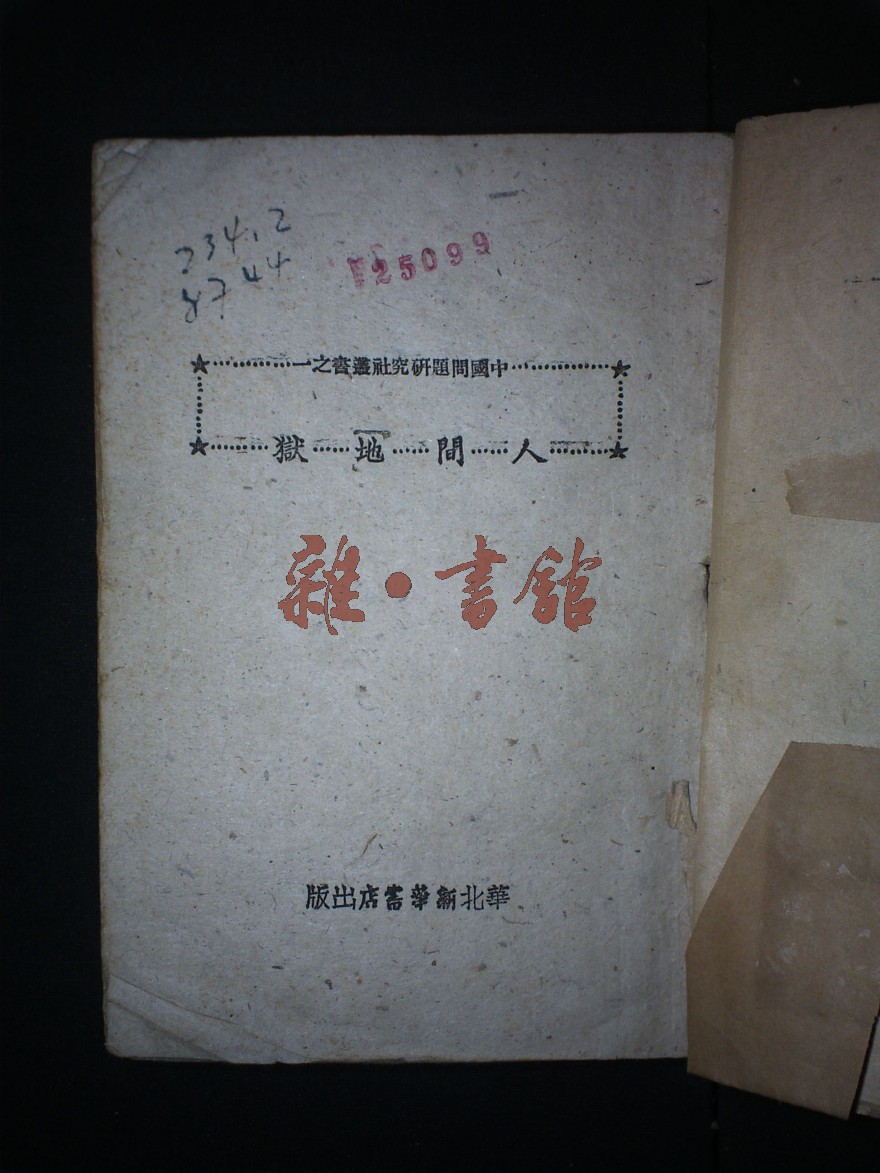 234.2
8744
25099
中國問題研究社叢書之一
人間地獄
雜·書館
華北新華書店出版